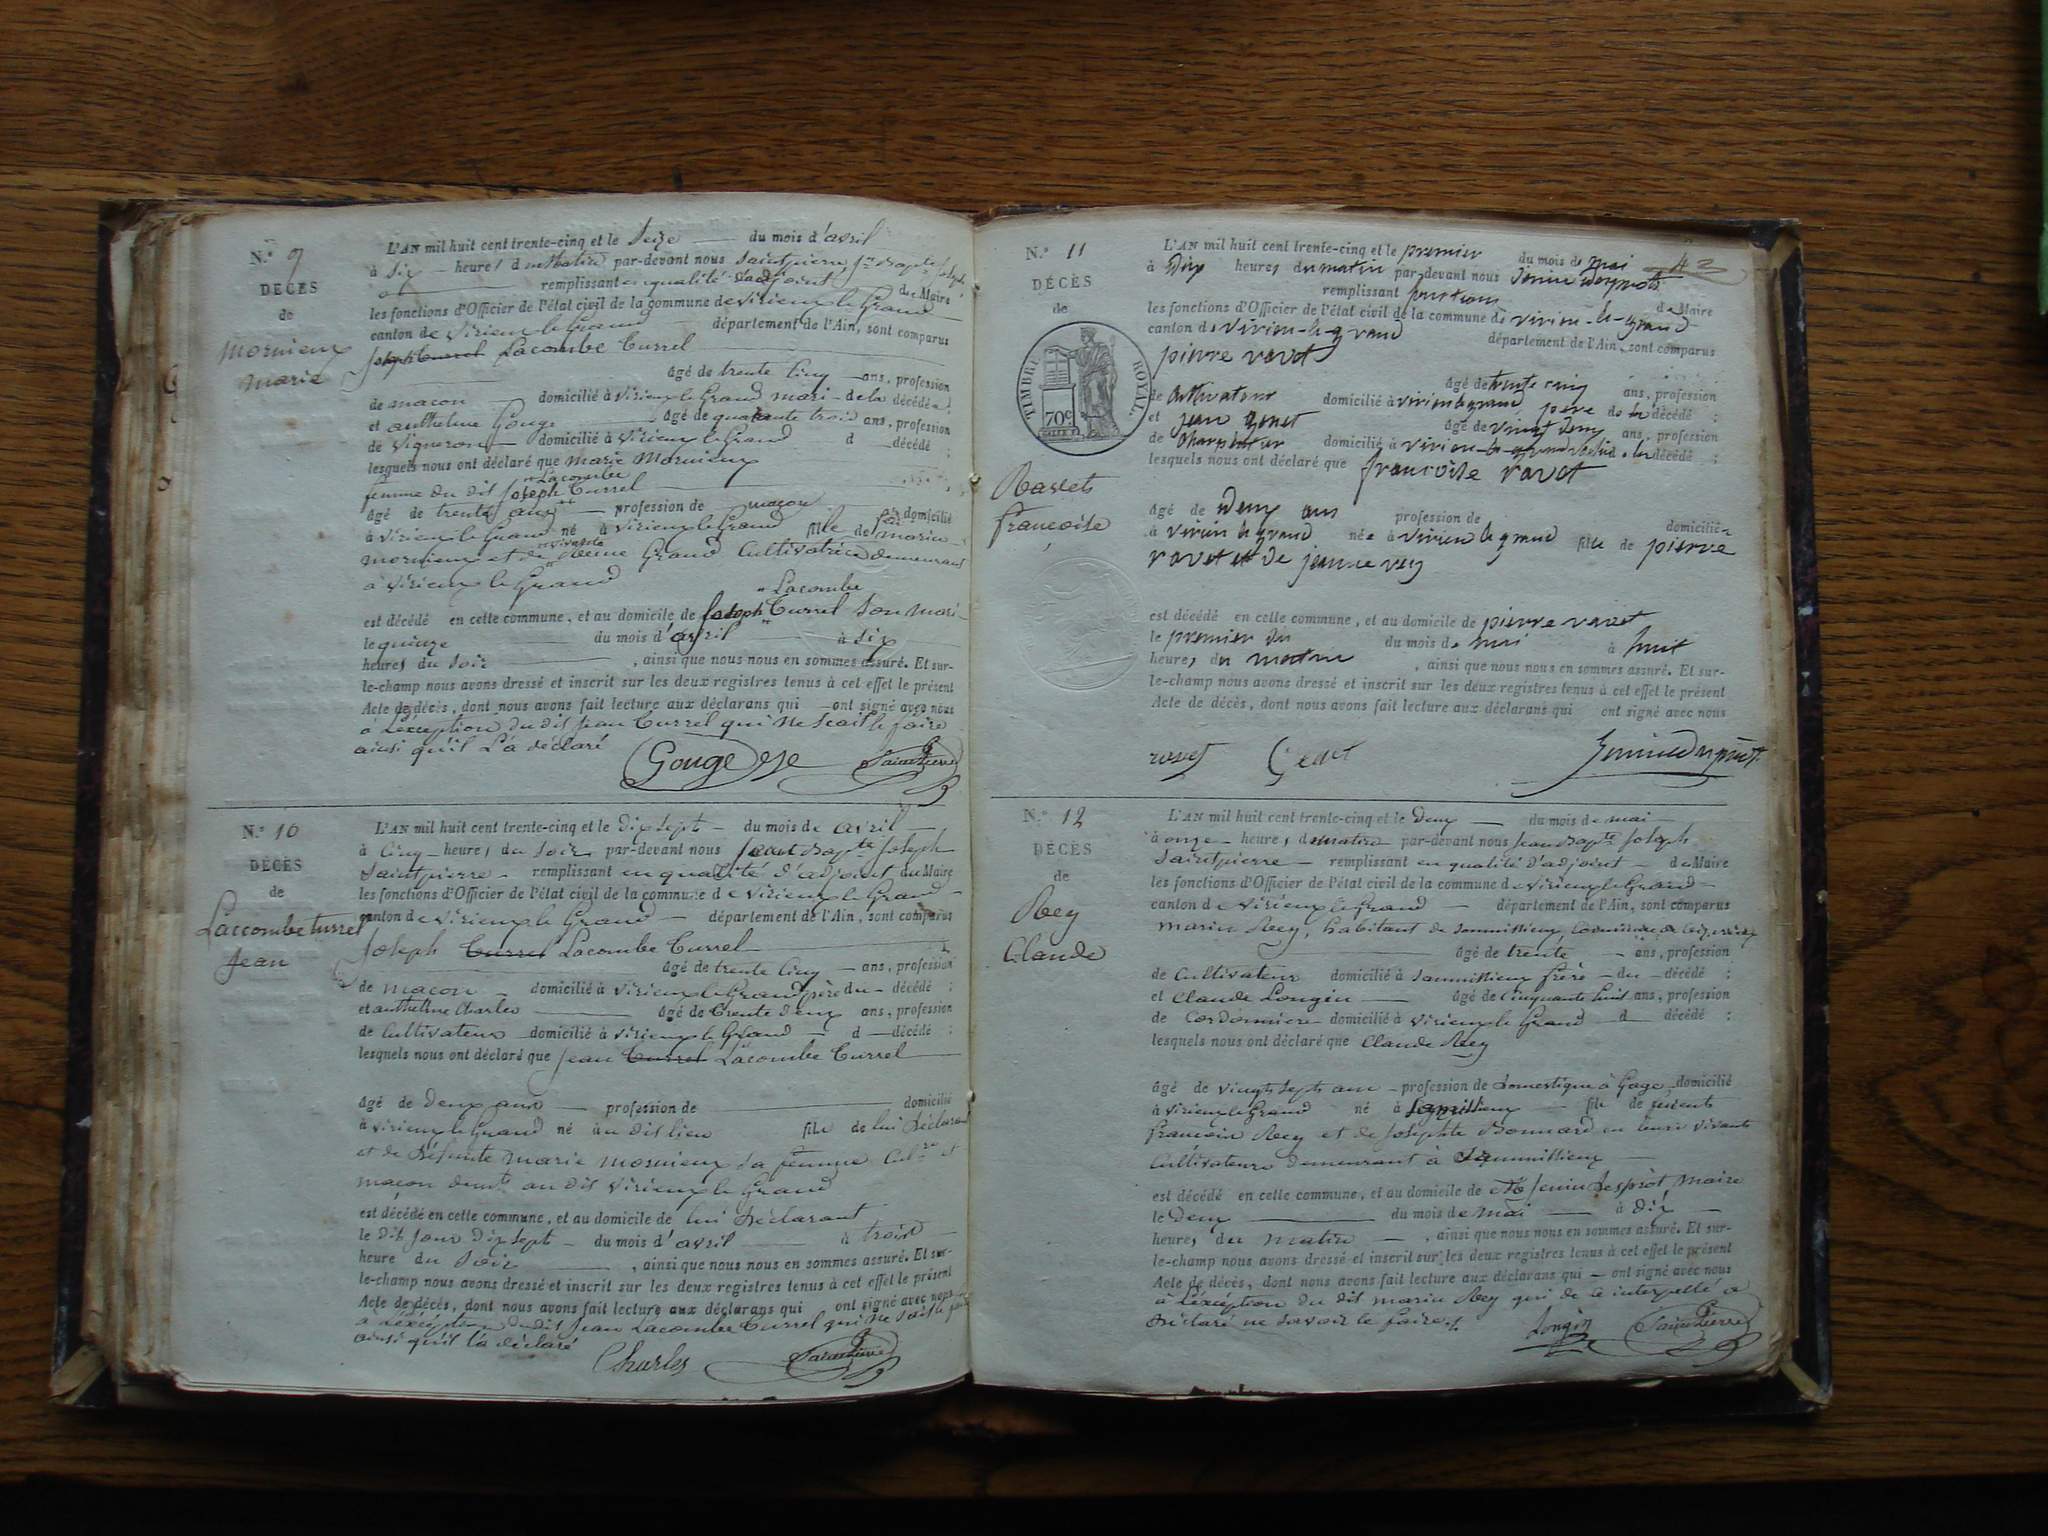 N.º 9
DÉCÈS
de
Mornieux
Marie
L'AN mil huit cent trente-cinq et le Seize du mois d'avril
à Six heures du Matin par-devant nous Saintpierre Jn Bapte Joseph
remplissant en qualité d'adjoint de Maire
les fonctions d'Officier de l'état civil de la commune de Virieux le Grand
canton de Virieux le Grand département de l'Ain, sont comparus
Joseph Currel Lacombe Currel
âgé de trente Cinq ans, profession
de macon domicilié à Virieux le Grand mari de la décédée ;
et anthelme Gouge âgé de quarante trois ans, profession
de Vigneron domicilié à Virieux le Grand d décédé ;
lesquels nous ont déclaré que marie Mornieux
Lacombe
femme du dit Joseph Currel
âgé de trente ans profession de macon domicilié
à Virieux le Grand né à Virieux le Grand fille de feu marin
mornieux et de vivante Grand Cultivatrice demeurant
à Virieux le Grand
Lacombe
est décédé en cette commune, et au domicile de Joseph Currel Son Mari
le quinze du mois d'avril à Six
heures du Soir , ainsi que nous nous en sommes assuré. Et sur-
le-champ nous avons dressé et inscrit sur les deux registres tenus à cet effet le présent
Acte de décès, dont nous avons fait lecture aux déclarans qui ont signé avec nous
à L'exception du dit Jean Currel qui ne Scait le faire
ainsi qu'il L'a déclaré
Gouge Saintpierre
N.º 10
DÉCÈS
de
Laccombe turrel
Jean
L'AN mil huit cent trente-cinq et le Dix Sept du mois de avril
à Cinq heures du Soir par-devant nous Jean Bapte Joseph
Saintpierre remplissant en qualité d'adjoint du Maire
les fonctions d'Officier de l'état civil de la commune de Virieux le Grand
canton de Virieux le Grand département de l'Ain, sont comparus
Joseph Currel Lacombe Currel
âgé de trente Cinq ans, profession
de macon domicilié à Virieux le Grand père du décédé ;
et anthelme Charles âgé de trente Deux ans, profession
de Cultivateur domicilié à Virieux le Grand d décédé ;
lesquels nous ont déclaré que Jean Currel Lacombe Currel
âgé de Deux ans profession de domicilié
à Virieux le Grand né au dit lieu fils de lui Déclarant
et de Défunte Marie Mornieux Sa femme et
macon au dit Virieux le Grand
est décédé en cette commune, et au domicile de lui Déclarant
le dit Jour Dix Sept du mois d'avril à trois
heure du Soir , ainsi que nous nous en sommes assuré. Et sur-
le-champ nous avons dressé et inscrit sur les deux registres tenus à cet effet le présent
Acte de décès, dont nous avons fait lecture aux déclarans qui ont signé avec nous
à L'exception du dit Jean Lacombe Currel qui ne Sait le faire
ainsi qu'il l'a déclaré
Charles Saintpierre
N.º 11
DÉCÈS
de
TIMBRE ROYAL.
70c
Ravet
françoise
L'AN mil huit cent trente-cinq et le premier du mois de mai
à Dix heures du matin par-devant nous
remplissant fonctions de Maire
les fonctions d'Officier de l'état civil de la commune de virieu-le-grand
canton de virieu-le-grand département de l'Ain, sont comparus
pierre ravet
âgé de trente cinq ans, profession
de cultivateur domicilié à virieu le grand père de la décédé ;
et jean genet âgé de vingt deux ans, profession
de charpentier domicilié à virieu-le-grand de la décédé ;
lesquels nous ont déclaré que françoise ravet
âgé de Deux ans profession de domiciliée
à virieu le grand née à virieu le grand fille de pierre
ravet et de jeanne rey
est décédé en cette commune, et au domicile de pierre ravet
le premier du du mois de mai à huit
heures du matin , ainsi que nous nous en sommes assuré. Et sur-
le-champ nous avons dressé et inscrit sur les deux registres tenus à cet effet le présent
Acte de décès, dont nous avons fait lecture aux déclarans qui ont signé avec nous
ravet
N.º 12
DÉCÈS
de
Rey
Claude
L'AN mil huit cent trente-cinq et le Deux du mois de mai
à onze heures du matin par-devant nous Jean Bapte Joseph
Saintpierre remplissant en qualité d'adjoint de Maire
les fonctions d'Officier de l'état civil de la commune de Virieux le Grand
canton de Virieux le Grand département de l'Ain, sont comparus
marin Rey, habitant de
âgé de trente ans, profession
de Cultivateur domicilié à frère du décédé ;
et Claude Longin âgé de Cinquante huit ans, profession
de Cordonnier domicilié à Virieux le Grand d décédé ;
lesquels nous ont déclaré que Claude Rey
âgé de vingt Sept ans profession de Domestique à Gage domicilié
à Virieux le Grand né à fils de
francois Rey et de Josephte Bonnard en leurs vivants
Cultivateurs demeurant à
est décédé en cette commune, et au domicile de Mr Maire
le Deux du mois de mai à dix
heures du matin , ainsi que nous nous en sommes assuré. Et sur-
le-champ nous avons dressé et inscrit sur les deux registres tenus à cet effet le présent
Acte de décès, dont nous avons fait lecture aux déclarans qui ont signé avec nous
à L'exception du dit marin Rey qui de ce interpellé a
Déclaré ne Savoir le faire
Longin Saintpierre